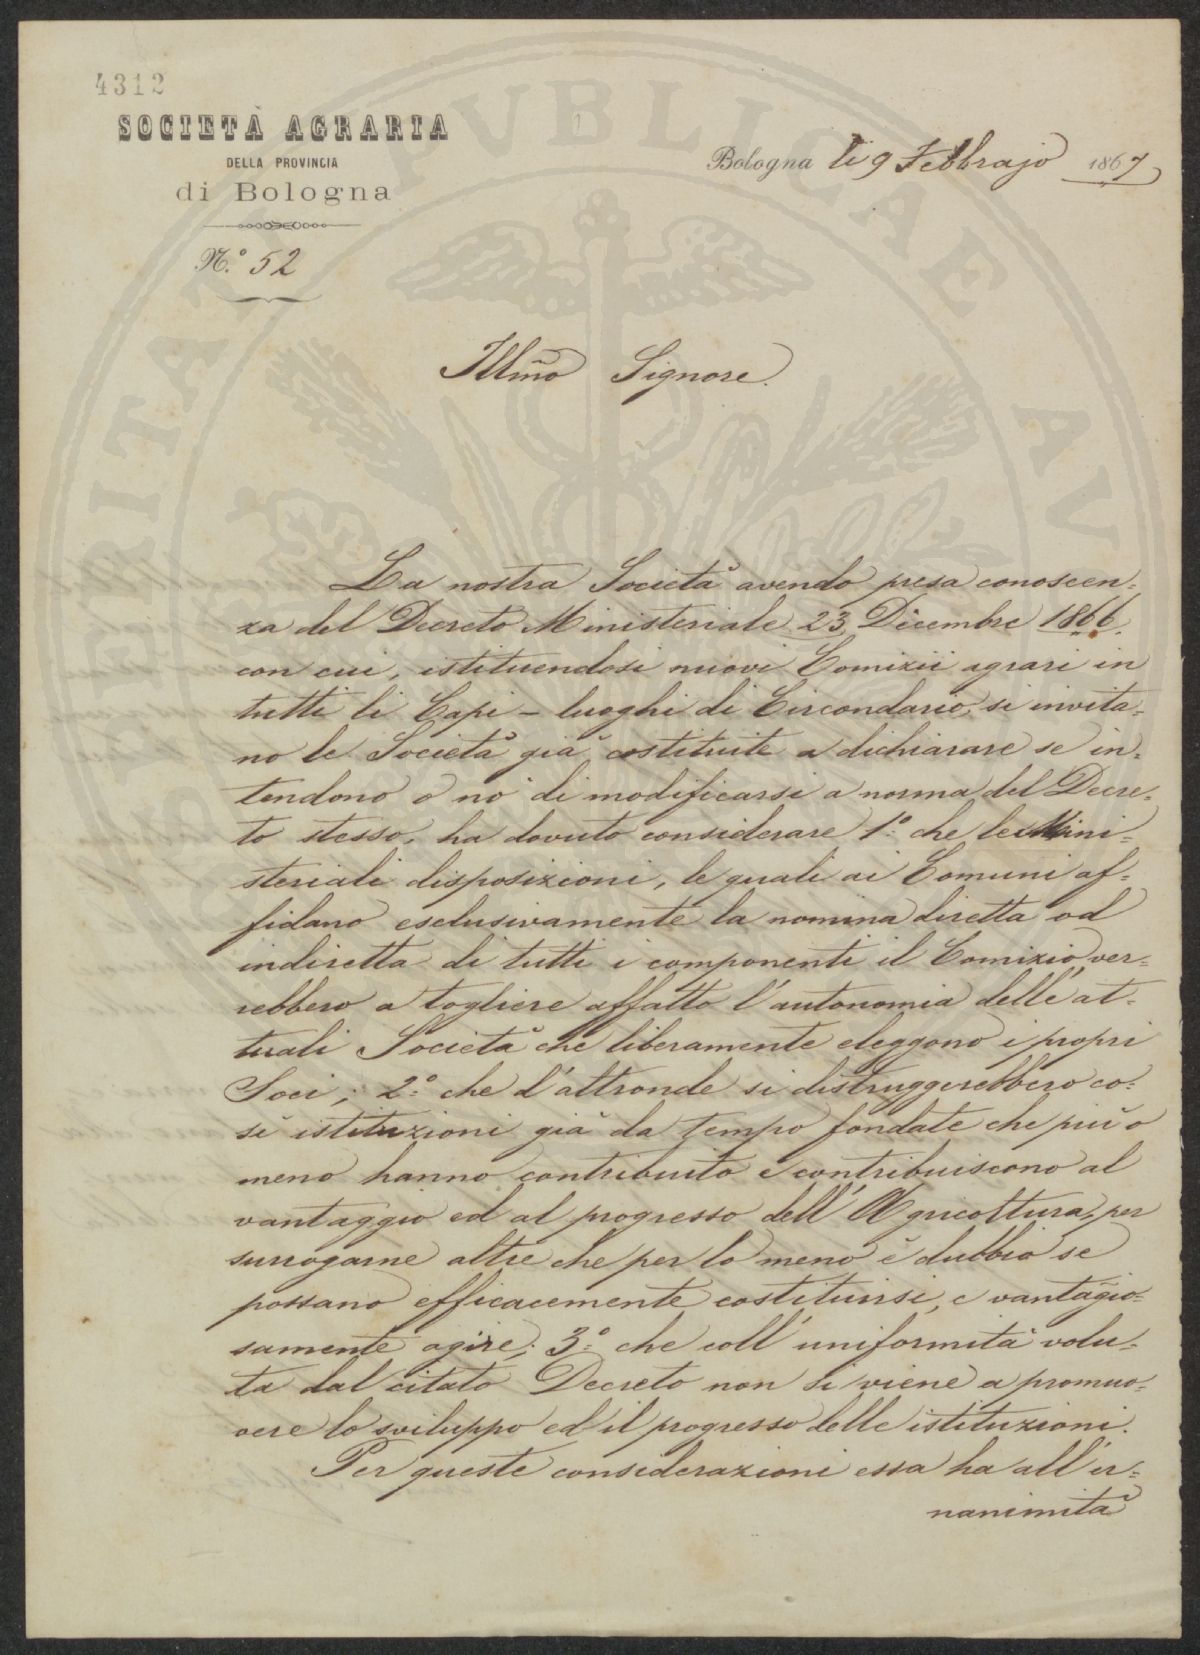 4312
SOCIETÀ AGRARIA
DELLA PROVINCIA
di Bologna
N.° 52
Bologna li 9 Febbrajo 1867
Illmo Signore.
La nostra Società avendo presa conoscen-
za del Decreto Ministeriale 23 Dicembre 1866.
con cui, istituendosi nuovi Comizii agrari in
tutti li Capi-luoghi di Circondario, si invita-
no le Società già costituite a dichiarare se in-
tendono o nò di modificarsi a norma del Decre-
to stesso, ha dovuto considerare 1.° che le Mini-
steriali disposizioni, le quali ai Comuni af-
fidano esclusivamente la nomina diretta od
indiretta di tutti i componenti il Comizio, ver-
rebbero a togliere affatto l'autonomia delle at-
tuali Società che liberamente eleggono i propri
Soci; 2.° che d'altronde si distruggerebbero co-
sì istituzioni già da tempo fondate che più o
meno hanno contribuito e contribuiscono al
vantaggio ed al progresso dell'Agricoltura, per
surrogarne altre che per lo meno è dubbio se
possano efficacemente costituirsi, e vantagio-
samente agire; 3.° che coll'uniformità volu-
ta dal citato Decreto non si viene a promuo-
vere lo sviluppo ed il progresso delle istituzioni.
Per queste considerazioni essa ha all'u-
nanimità
PROSPERITATI PUBLICAE AU